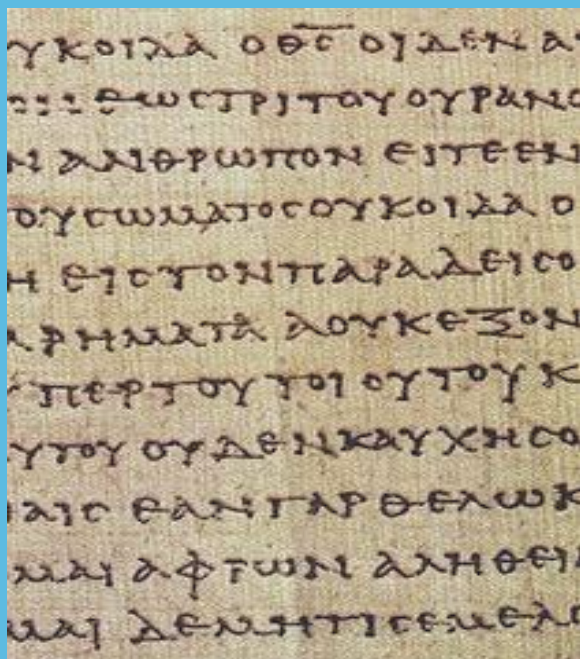 ΥΚΟΙΔΑ Ο ΘΣ ΟΙΔΕΝ Α
ΕΩΣ ΤΡΙΤΟΥ ΟΥΡΑΝΟ
Ν ΑΝΘΡΩΠΟΝ ΕΙΤΕ ΕΝ
ΟΥ ΣΩΜΑΤΟΣ ΟΥΚ ΟΙΔΑ Ο
Η ΕΙΣ ΤΟΝ ΠΑΡΑΔΕΙΣΟ
ΡΗΜΑΤΑ Α ΟΥΚ ΕΞΟΝ
ΥΠΕΡ ΤΟΥ ΤΟΙΟΥΤΟΥ Κ
ΥΤΟΥ ΟΥΔΕΝ ΚΑΥΧΗΣΟ
ΑΙΣ ΕΑΝ ΓΑΡ ΘΕΛΩ Κ
ΜΑΙ ΑΦΡΩΝ ΑΛΗΘΕΙ
ΜΑΙ ΔΕ ΜΗ ΤΙΣ ΕΜΕ ΛΟ